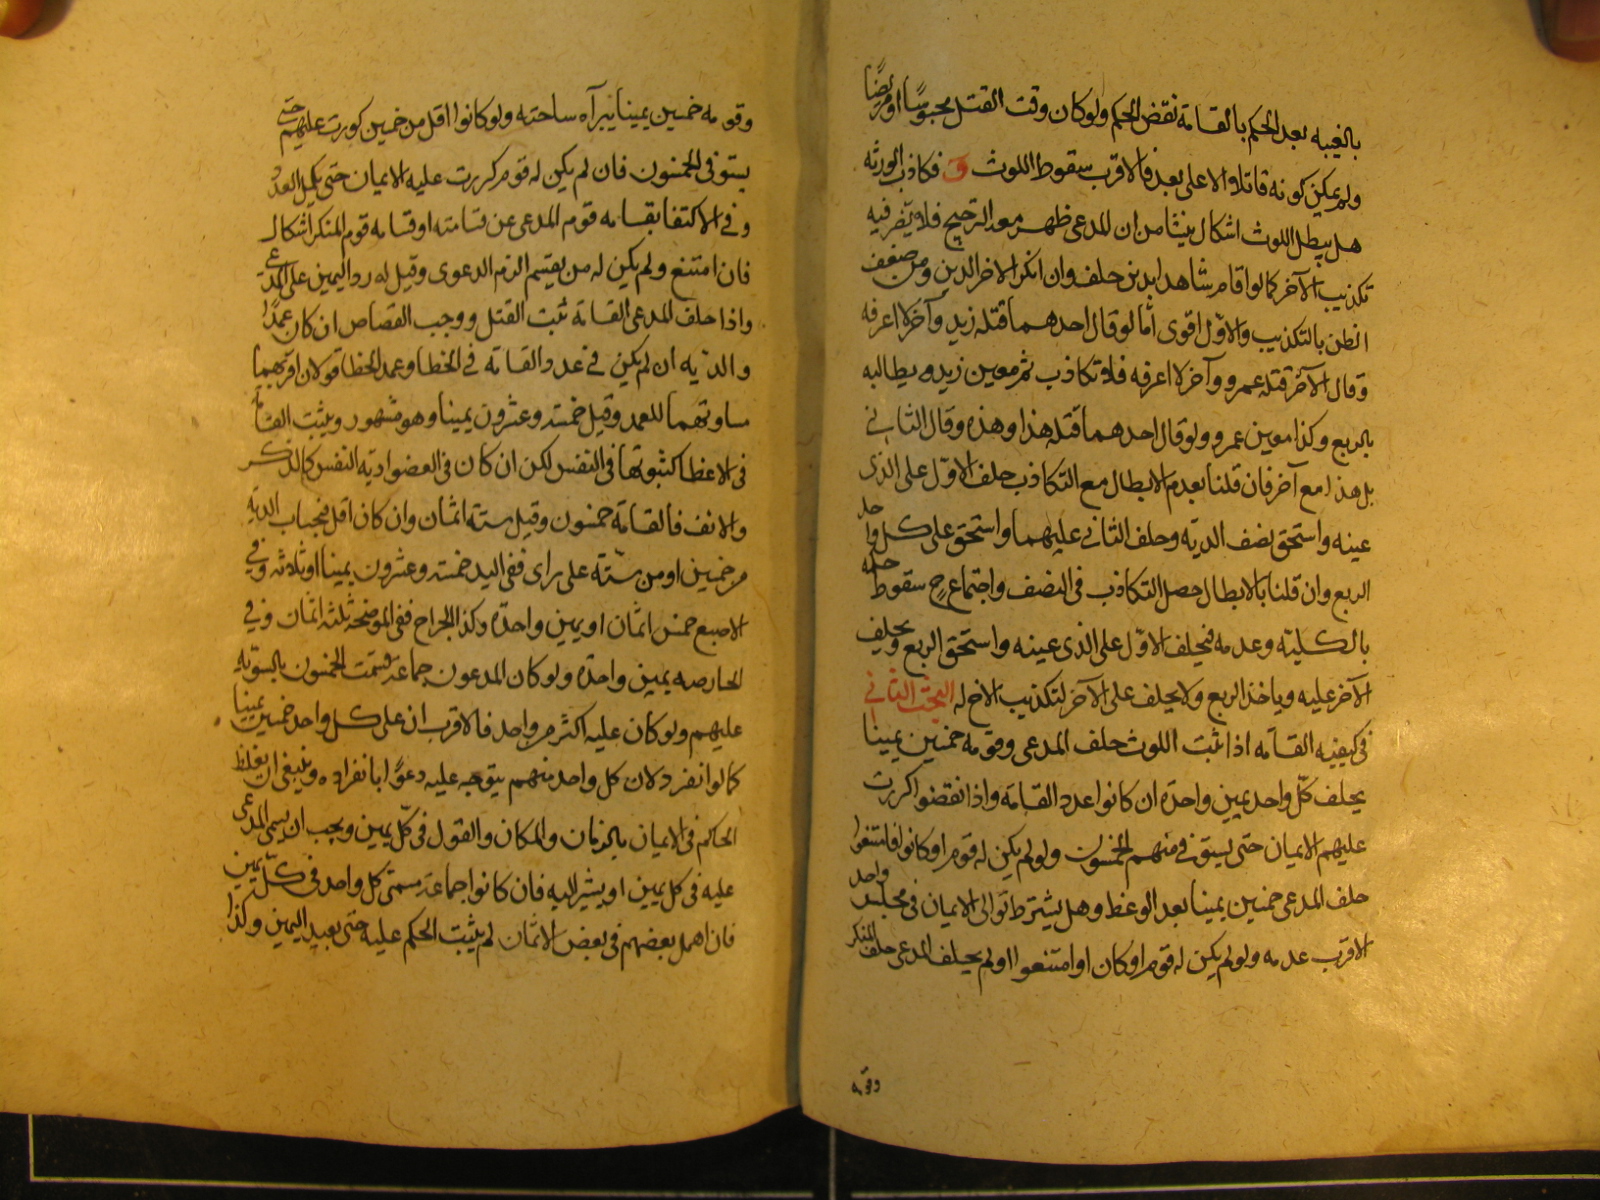 بالغيبه بعد الحكم بالقسامة نقض الحكم ولو كان وقت القتل محبوسًا او مريضًا
ولم يمكن كونه قاتلا والا على بعد فالاقرب سقوط اللوث و فكاذب الورثه
هل يبطل اللوث اشكال ينشا من ان المدعى ظهر معه الترجيح فلا يضر فيه
تكذيب الآخر كما لو اقام شاهدا بدين حلف وان انكر الاخر الدين ومن ضعف
الظن بالتكذيب والاوّل اقوى أمّا لو قال احدهما قتله زيد وآخر لا اعرفه
وقال الآخر قتله عمرو وآخر لا اعرفه فلا تكاذب ثم معين زيد يطالبه
بالربع وكذا معين عمرو ولو قال احدهما قتله هذا وهذه وقال الثانى
بل هذا مع آخر فان قلنا بعدم الابطال مع التكاذب حلف الاوّل على الذى
عينه واستحق نصف الديّه وحلف الثانى عليهما واستحق على كل واحد
الربع وان قلنا بالابطال حصل التكاذب فى النصف واجتماع ح سقوط حكمه
بالكليّه وعدمه فيحلف الاوّل على الذى عينه واستحق الربع ويحلف
الآخر عليه وياخذ الربع ولا يحلف على الآخر لتكذيب الاخ له البحث الثانى
فى كيفيّه القسامه اذا ثبت اللوث حلف المدعى وقومه خمسين يمينا
يحلف كلّ واحد يمين واحدة ان كانوا عدد القسامة واذا نقصوا كررت
عليهم الايمان حتى يستوفى منهم الخمسون ولو لم يكن له قوم او كانوا فامتنعوا
حلف المدعى خمسين يمينا بعد الوعظ وهل يشترط توالى الايمان فى مجلس واحد
الاقرب عدمه ولو لم يكن له قوم او كان او امتنعوا او لم يحلف المدعى حلف المنكر
وقومه
وقومه خمسين يمينا يبرآه ساحته ولو كانوا اقل من خمسين كررت عليهم حتى
يستوفى الخمسون فان لم يكن له قوم كررت عليه الايمان حتى يكمل العدد
وفى الاكتفا بقسامه قوم المدعى عن قسامته او قسامه قوم المنكر اشكال
فان امتنع ولم يكن له من يقسم الزم الدعوى وقيل له رد اليمين على المدعى
واذا حلف المدعى القسامة ثبت القتل ووجب القصاص ان كان عمدًا
والديّه ان لم يكن فى عدد القسامة فى الخطا وعمد الخطا قولان اقربهما
مساوتهما للعمد وقيل خمسة وعشرون يمينا وهو مشهور ويثبت القسامة
فى الاعظا كثبوتها فى النفس لكن ان كان فى العضو ديّه النفس كالذكر
والانف فالقسامة خمسون وقيل ستة ايمان وان كان اقل فبحساب الديّه
من خمسين او من ستّة على راى ففى اليد خمسة وعشرون يمينا او ثلاثه وفى
الاصبع خمس ايمان او يمين واحدة وكذا الجراح ففى الموضحه ثلثه ايمان وفى
الحارصه يمين واحدة ولو كان المدعون جماعة قسمت الخمسون بالسويّه
عليهم ولو كان عليه اكثر من واحد فالاقرب ان على كل واحد خمسين يمينا
كما لو انفرد لان كل واحد منهم يتوجه عليه دعوى بانفراده وينبغى ان يغلظ
الحاكم فى الايمان بالزمان والمكان والقول فى كلّ يمين ويجب ان يسمى المدعى
عليه فى كل يمين او يشير اليه فان كانوا جماعة سمّى كل واحد فى كل يمين
فان اهمل بعضهم فى بعض الايمان لم يثبت الحكم عليه حتى يعيد اليمين وكذا